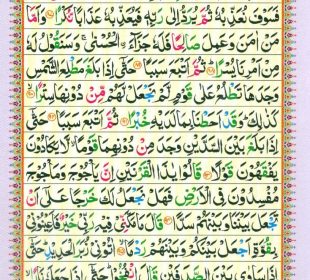 فَسَوْفَ نُعَذِّبُهٗ ثُمَّ يُرَدُّ اِلٰى رَبِّهٖ فَيُعَذِّبُهٗ عَذَابًا نُّكْرًا ۝ وَاَمَّا
مَنْ اٰمَنَ وَعَمِلَ صَالِحًا فَلَهٗ جَزَآءَ ۨالْحُسْنٰى ۚ وَسَنَقُوْلُ لَهٗ
مِنْ اَمْرِنَا يُسْرًا ۝ ثُمَّ اَتْبَعَ سَبَبًا ۝ حَتّٰٓى اِذَا بَلَغَ مَطْلِعَ الشَّمْسِ
وَجَدَهَا تَطْلُعُ عَلٰى قَوْمٍ لَّمْ نَجْعَلْ لَّهُمْ مِّنْ دُوْنِهَا سِتْرًا ۝
كَذٰلِكَ ؕ وَقَدْ اَحَطْنَا بِمَا لَدَيْهِ خُبْرًا ۝ ثُمَّ اَتْبَعَ سَبَبًا ۝ حَتّٰٓى
اِذَا بَلَغَ بَيْنَ السَّدَّيْنِ وَجَدَ مِنْ دُوْنِهِمَا قَوْمًا ۙ لَّا يَكَادُوْنَ
يَفْقَهُوْنَ قَوْلًا ۝ قَالُوْا يٰذَا الْقَرْنَيْنِ اِنَّ يَاْجُوْجَ وَمَاْجُوْجَ
مُفْسِدُوْنَ فِى الْاَرْضِ فَهَلْ نَجْعَلُ لَكَ خَرْجًا عَلٰٓى اَنْ
تَجْعَلَ بَيْنَنَا وَبَيْنَهُمْ سَدًّا ۝ قَالَ مَا مَكَّنِّىْ فِيْهِ رَبِّىْ خَيْرٌ فَاَعِيْنُوْنِىْ
بِقُوَّةٍ اَجْعَلْ بَيْنَكُمْ وَبَيْنَهُمْ رَدْمًا ۝ اٰتُوْنِىْ زُبَرَ الْحَدِيْدِ ؕ حَتّٰٓى
اِذَا سَاوٰى بَيْنَ الصَّدَفَيْنِ قَالَ انْفُخُوْا ؕ حَتّٰٓى اِذَا جَعَلَهٗ نَارًا ۙ